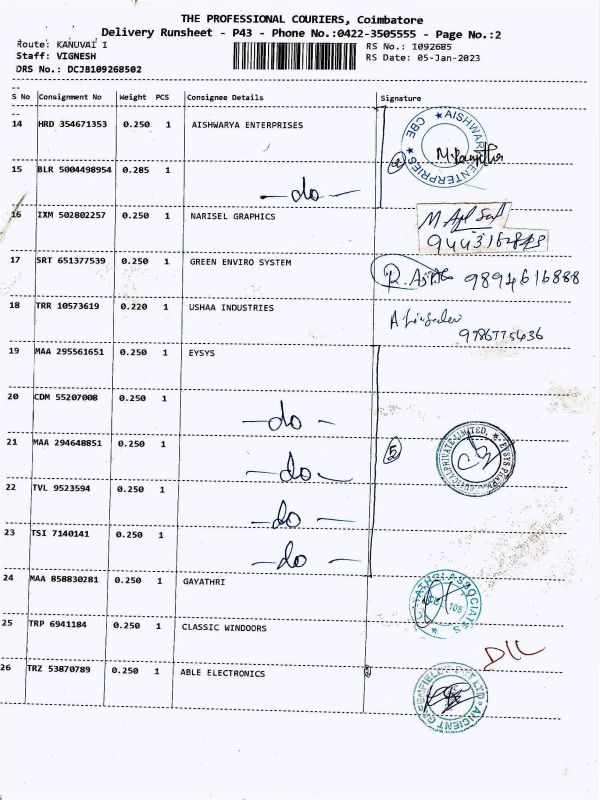 THE PROFESSIONAL COURIERS, Coimbatore
Delivery Runsheet - P43 - Phone No.:0422-3505555 - Page No.:2
Route: KANUVAI I
RS No.: I092685
Staff: VIGNESH
RS Date: 05-Jan-2023
DRS No.: DCJB109268502
S No Consignment No Weight PCS Consignee Details Signature
14 HRD 354671353 0.250 1 AISHWARYA ENTERPRISES
★ AISHWARYA ENTERPRIES ★ CBE
2
15 BLR 5004498954 0.285 1 -do-
16 IXM 502802257 0.250 1 NARISEL GRAPHICS
17 SRT 651377539 0.250 1 GREEN ENVIRO SYSTEM 9894616888
18 TRR 10573619 0.220 1 USHAA INDUSTRIES
9786775436
19 MAA 295561651 0.250 1 EYSYS
20 CDM 55207008 0.250 1 -do-
21 MAA 294648851 0.250 1 -do- 5
22 TVL 9523594 0.250 1 -do-
23 TSI 7140141 0.250 1 -do-
24 MAA 858830281 0.250 1 GAYATHRI
25 TRP 6941184 0.250 1 CLASSIC WINDOORS
26 TRZ 53870789 0.250 1 ABLE ELECTRONICS